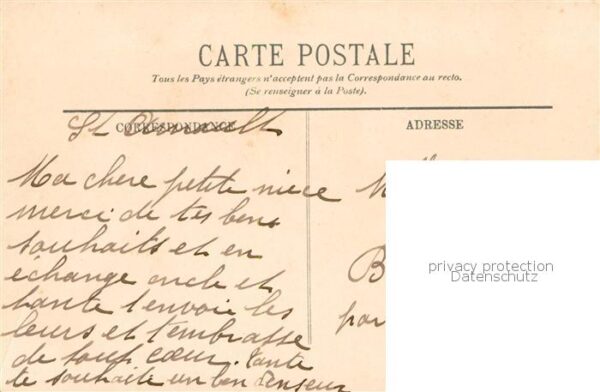 CARTE POSTALE
Tous les Pays étrangers n'acceptent pas la Correspondance au recto.
(Se renseigner à la Poste).
CORRESPONDANCE
ADRESSE
St
Ma chere petite niece
merci de tes bons
souhaits et en
échange oncle et
tante t'envoie les
leurs et t'embrasse
de tout cœur. tante
te souhaite un bon
M
B
par
privacy protection
Datenschutz